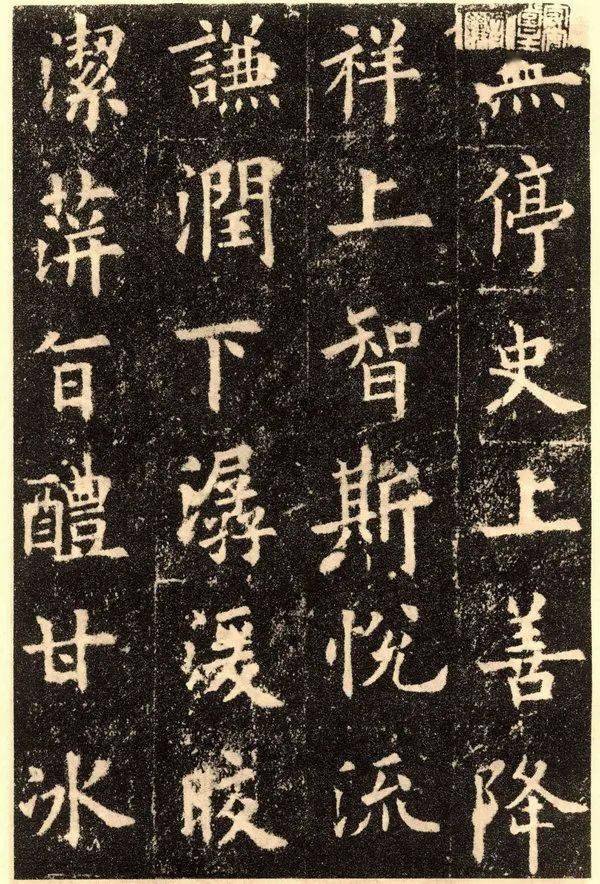 無停史上善降
祥上智斯悦流
謙潤下潺湲皎
潔蓱旨醴甘冰